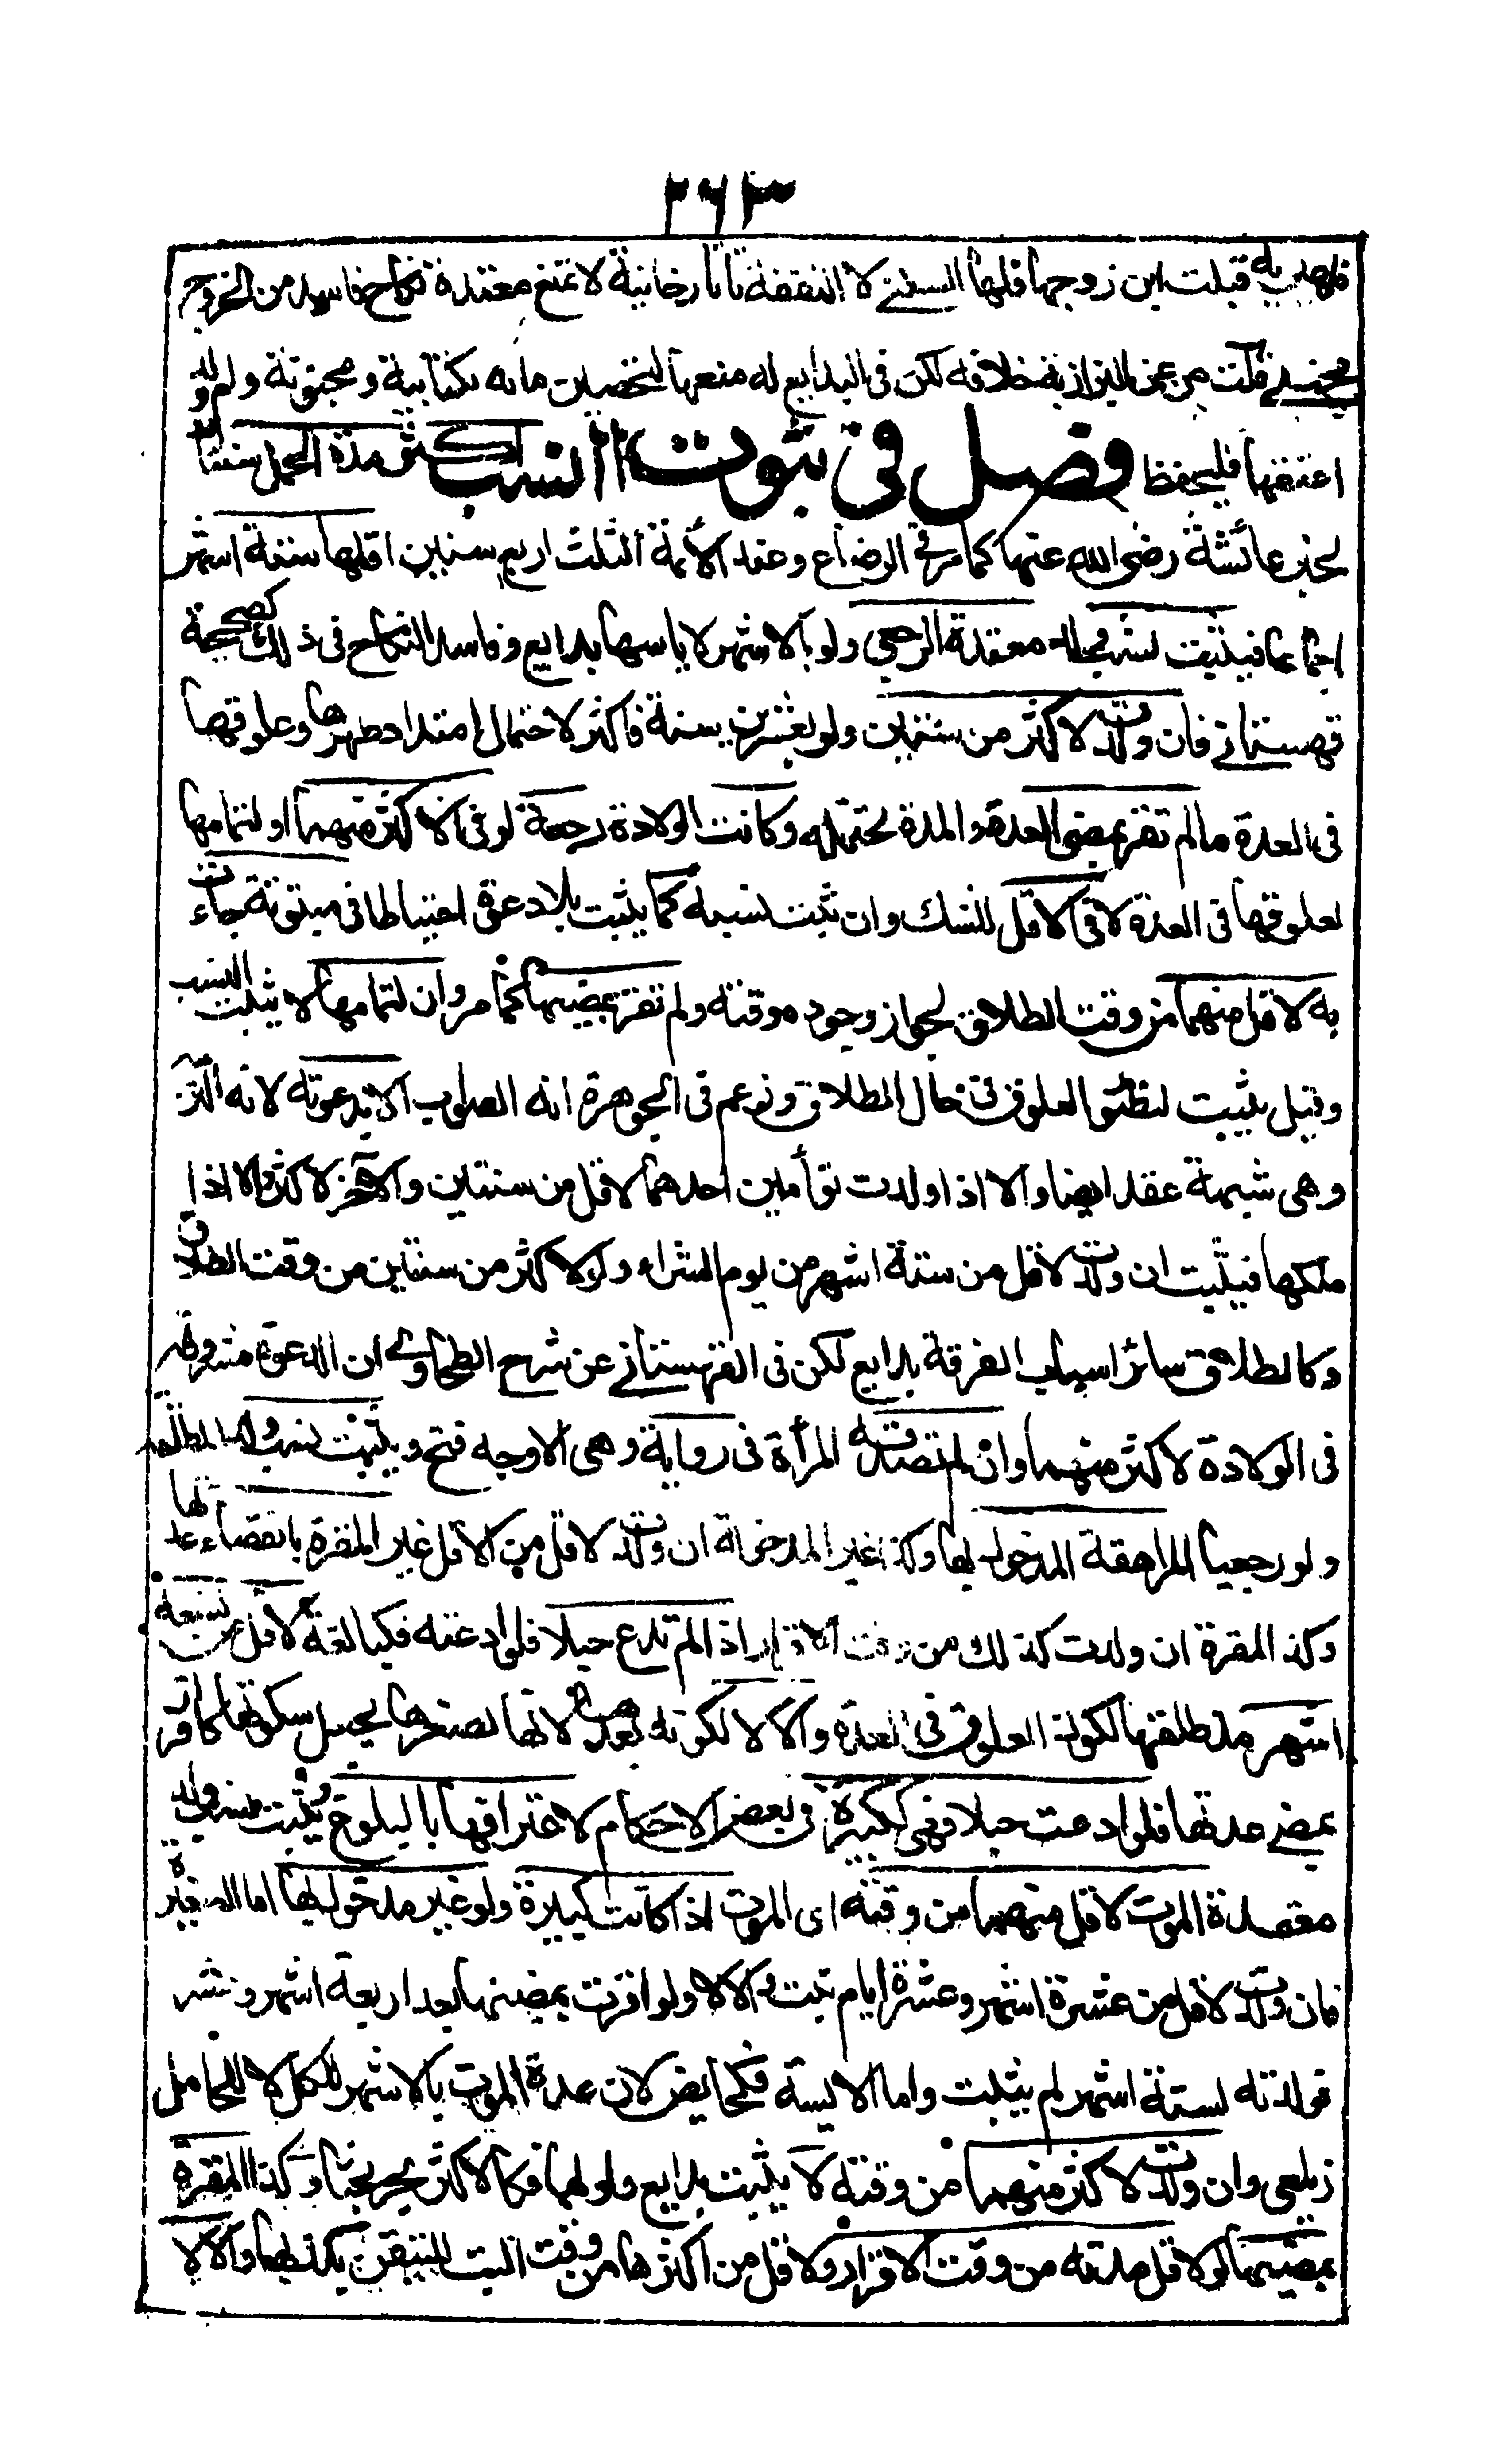 ٢٦٣
ظهيرية قبلت ابن زوجها فلها السكنى لا النفقة تاتارخانية لا تمنع معتدة نكاح فاسد من الخروج
مجتبى قلت مر عن البزازية خلافه لكن فى البدايع له منعها لتحصين مائه ككتابية ومجنونة وام ولد
اعتقها فليحفظ فصل فى ثبوت النسب اكثر مدة الحمل سنتان
لخبر عائشة رضى الله عنها كما مر فى الرضاع وعند الأئمة الثلث اربع سنين اقلها ستة اشهر
اجماعا فيثبت نسب ولد معتدة الرجعى ولو بالاشهر لاياسها بدايع وفاسد النكاح فى ذلك كصحيحه
قهستانى فان ولدت لاكثر من سنتين ولو لعشرين سنة فاكثر لاحتمال امتداد طهرها وعلوقها
فى العدة ما لم تقر بمضى العدة والمدة تحتمله وكانت الولادة رجعة لو فى الاكثر منهما او لتمامها
لعلوقها فى العدة لا فى الاقل للشك وان ثبت نسبه كما يثبت بلا دعوة احتياطا فى مبتوتة جاءت
به لاقل منهما من وقت الطلاق لجواز وجوده وقته ولم تقر بمضيها كما مر وان لتمامها لا يثبت النسب
وقيل يثبت لتصور العلوق فى حال الطلاق وزعم فى الجوهرة انه الصواب الا بدعوته لانه التزمه
وهى شبهة عقد ايضا والا اذا ولدت توأمين احدهما لاقل من سنتين والآخر لاكثر والا اذا
ملكها فيثبت ان ولدت لاقل من ستة اشهر من يوم الشراء ولو لاكثر من سنتين من وقت الطلاق
وكالطلاق سائر اسباب الفرقة بدايع لكن فى القهستانى عن شرح الطحاوى ان الدعوة مشروطة
فى الولادة لاكثر منهما وان لم تصدقه المرأة فى رواية وهى الاوجه فتح ويثبت نسب ولد المطلقة
ولو رجعيا المراهقة المدخول بها وكذا غير المدخولة ان ولدت لاقل من الاقل غير المقرة بانقضاء عدتها
وكذا المقرة ان ولدت كذلك من وقت الاقرار اذا لم تدع حبلا فلو ادعته فكبالغة لاقل من تسعة
اشهر مذ طلقها لكون العلوق فى العدة والا لا لكونه بعدها لانها لصغرها يجعل سكوتها كالاقرار
بمضى عدتها فلو ادعت حبلا فهى ككبيرة فى بعض الاحكام لاعترافها بالبلوغ ويثبت نسب ولد
معتدة الموت لاقل منهما من وقته اى الموت اذا كانت كبيرة ولو غير مدخول بها اما الصغيرة
فان ولدت لاقل من عشرة اشهر وعشرة ايام ثبت والا لا ولو اقرت بمضيها بعد اربعة اشهر وعشر
فولدته لستة اشهر لم يثبت واما الآيسة فكحايض لان عدة الموت بالاشهر للكل الا للحامل
زيلعى وان ولدت لاكثر منهما من وقته لا يثبت بدايع ولو لهما فكالاكثر بحر بحثا وكذا المقرة
بمضيها لو لاقل مدته من وقت الاقرار ولاقل من اكثرها من وقت البت للتيقن بكذبها والا لا